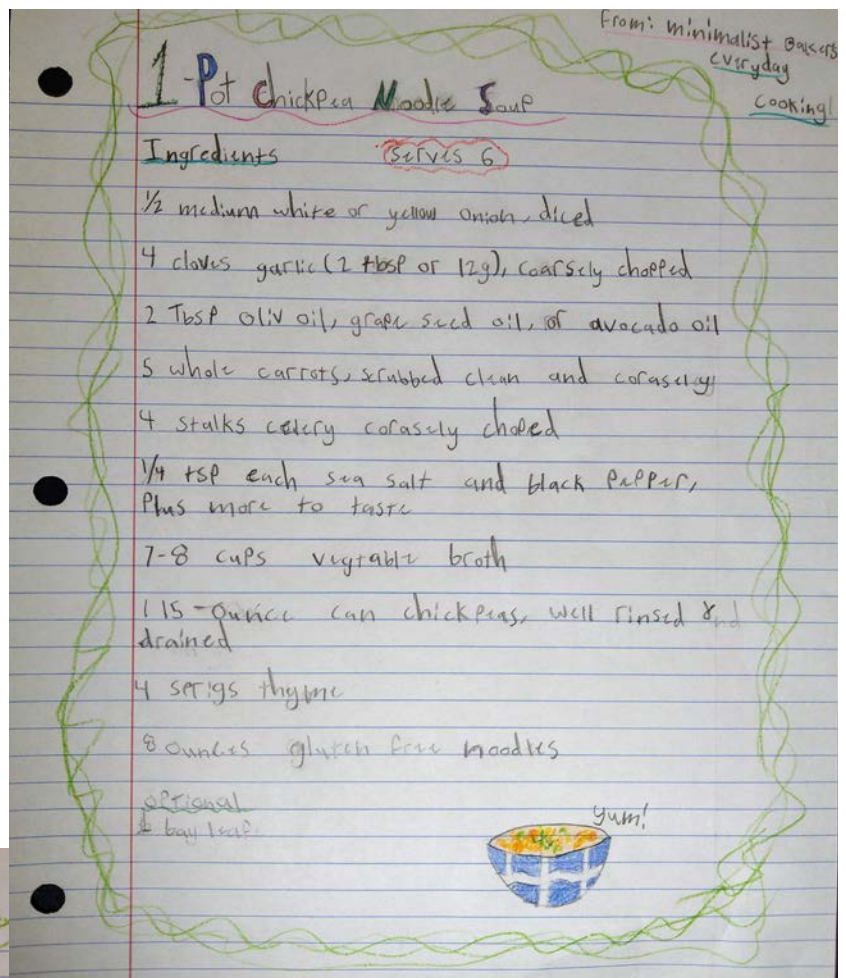 From: minimalist Bakers
everyday
Cooking!
1-Pot Chickpea Noodle Soup
Ingredients serves 6
1/2 medium white or yellow onion, diced
4 cloves garlic (2 tbsp or 12g), coarsely chopped
2 Tbsp oliv oil, grape seed oil, or avocado oil
5 whole carrots, scrubbed clean and corasely
4 stalks celery corasely choped
1/4 tsp each sea salt and black pepper,
Plus more to taste
7-8 cups vegtable broth
1 15-ounce can chickpeas, well rinsed and
drained
4 serigs thyme
8 ounces gluten free noodles
optional
bay leaf
Yum!